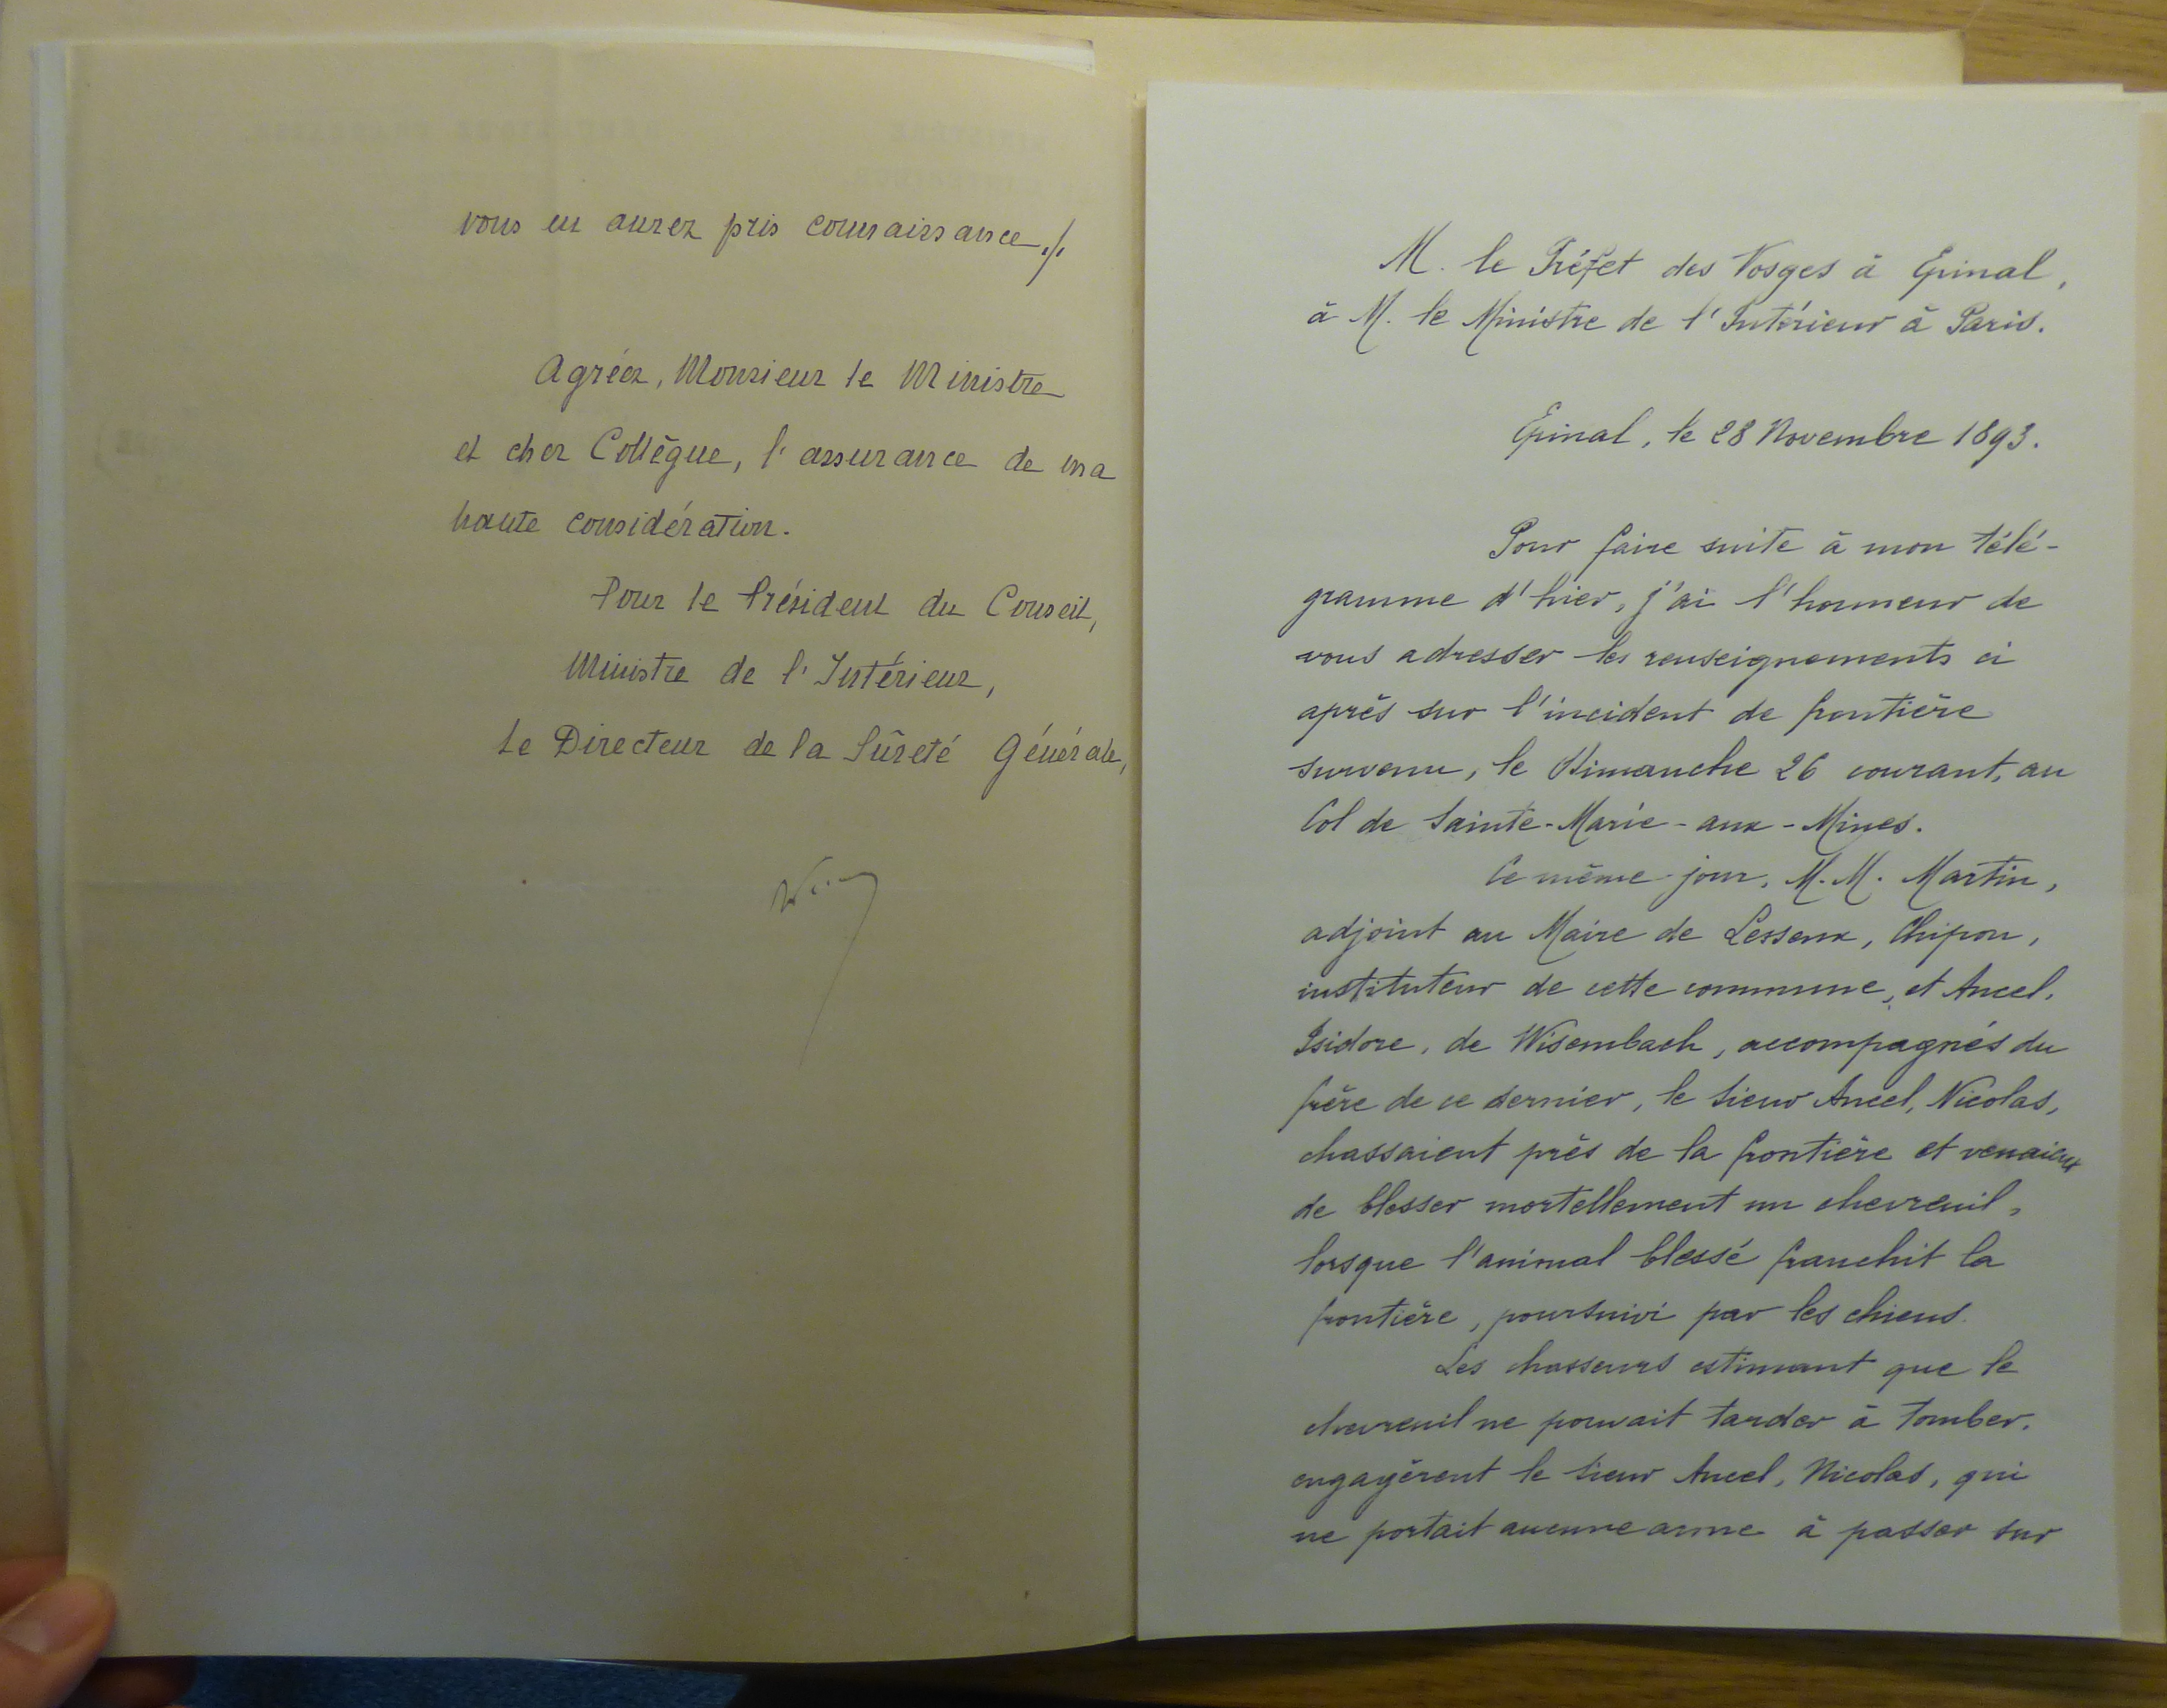 vous en aurez pris connaissance ./.
Agréez, Monsieur le Ministre
et cher Collègue, l'assurance de ma
haute considération.
Pour le Président du Conseil,
Ministre de l'Intérieur,
Le Directeur de la Sûreté Générale,
M. le Préfet des Vosges à Epinal,
à M. le Ministre de l'Intérieur à Paris.
Epinal, le 28 Novembre 1893.
Pour faire suite à mon télé-
gramme d'hier, j'ai l'honneur de
vous adresser les renseignements ci
après sur l'incident de frontière
survenu, le Dimanche 26 courant, au
Col de Sainte-Marie-aux-Mines.
Ce même jour, M.M. Martin,
adjoint au Maire de Lesseux, Chipon,
instituteur de cette commune, et Ancel,
Isidore, de Wisembach, accompagnés du
frère de ce dernier, le sieur Ancel, Nicolas,
chassaient près de la frontière et venaient
de blesser mortellement un chevreuil,
lorsque l'animal blessé franchit la
frontière, poursuivi par les chiens.
Les chasseurs estimant que le
chevreuil ne pouvait tarder à tomber,
engagèrent le sieur Ancel, Nicolas, qui
ne portait aucune arme à passer sur